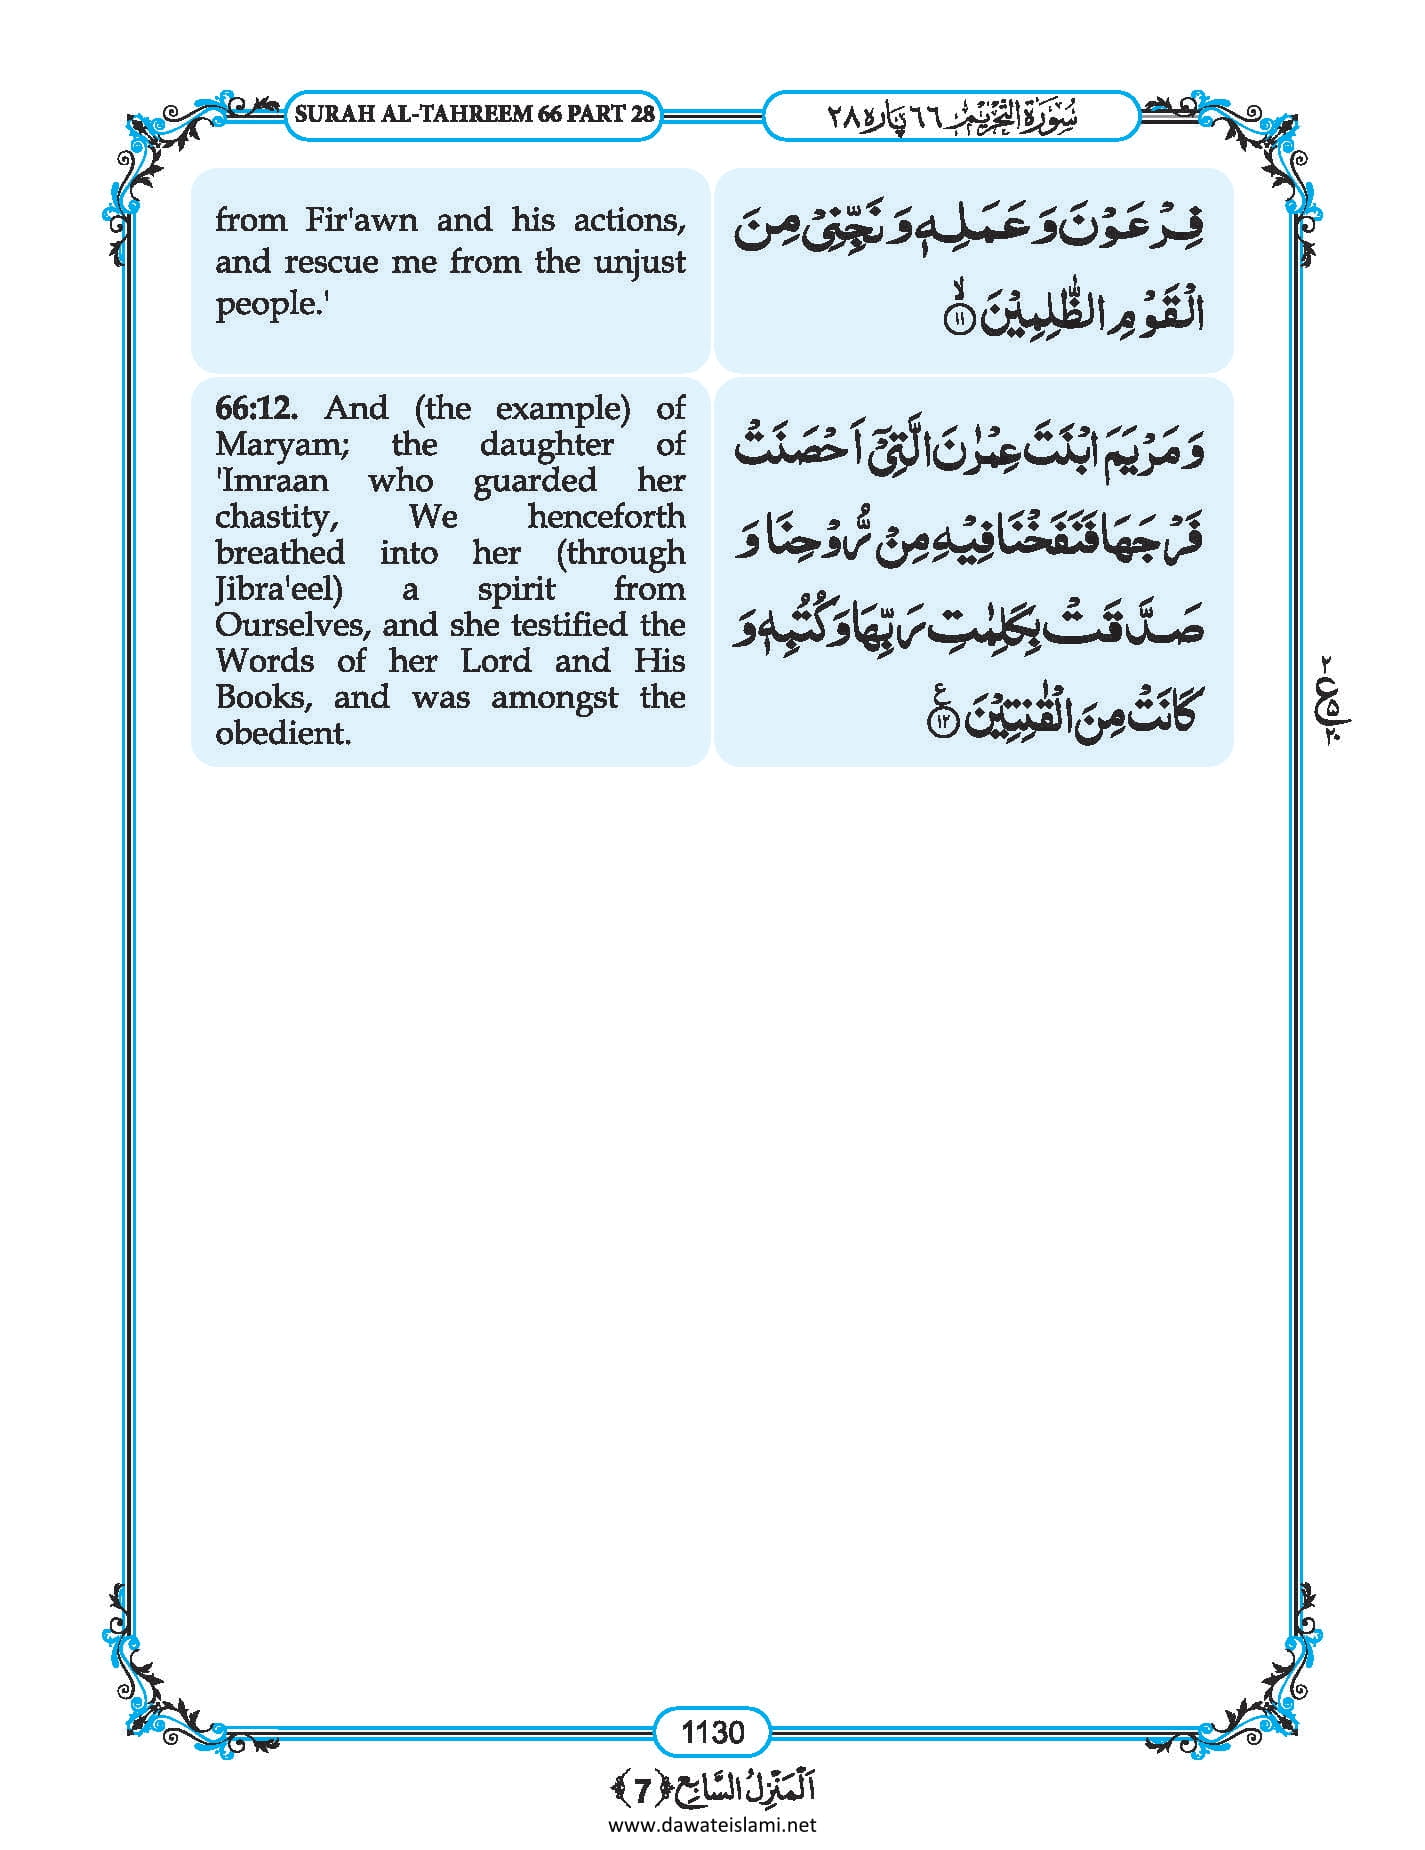 SURAH AL-TAHREEM 66 PART 28
سُوۡرَۃُ التَّحۡرِیۡمِ ٦٦ پارہ ٢٨
from Fir'awn and his actions,
and rescue me from the unjust
people.'
فِرْعَوْنَ وَعَمَلِهٖ وَنَجِّنِیْ مِنَ
الْقَوْمِ الظّٰلِمِیْنَ ۙ﴿۱۱﴾
66:12. And (the example) of
Maryam; the daughter of
'Imraan who guarded her
chastity, We henceforth
breathed into her (through
Jibra'eel) a spirit from
Ourselves, and she testified the
Words of her Lord and His
Books, and was amongst the
obedient.
وَمَرْیَمَ ابْنَتَ عِمْرٰنَ الَّتِیْۤ اَحْصَنَتْ
فَرْجَهَا فَنَفَخْنَا فِیْهِ مِنْ رُّوْحِنَا وَ
صَدَّقَتْ بِكَلِمٰتِ رَبِّهَا وَكُتُبِهٖ وَ
كَانَتْ مِنَ الْقٰنِتِیْنَ ﴿۱۲﴾ ع
٢
ع ۵
٢٠
1130
اَلْمَنْزِلُ السَّابِع ﴿7﴾
www.dawateislami.net